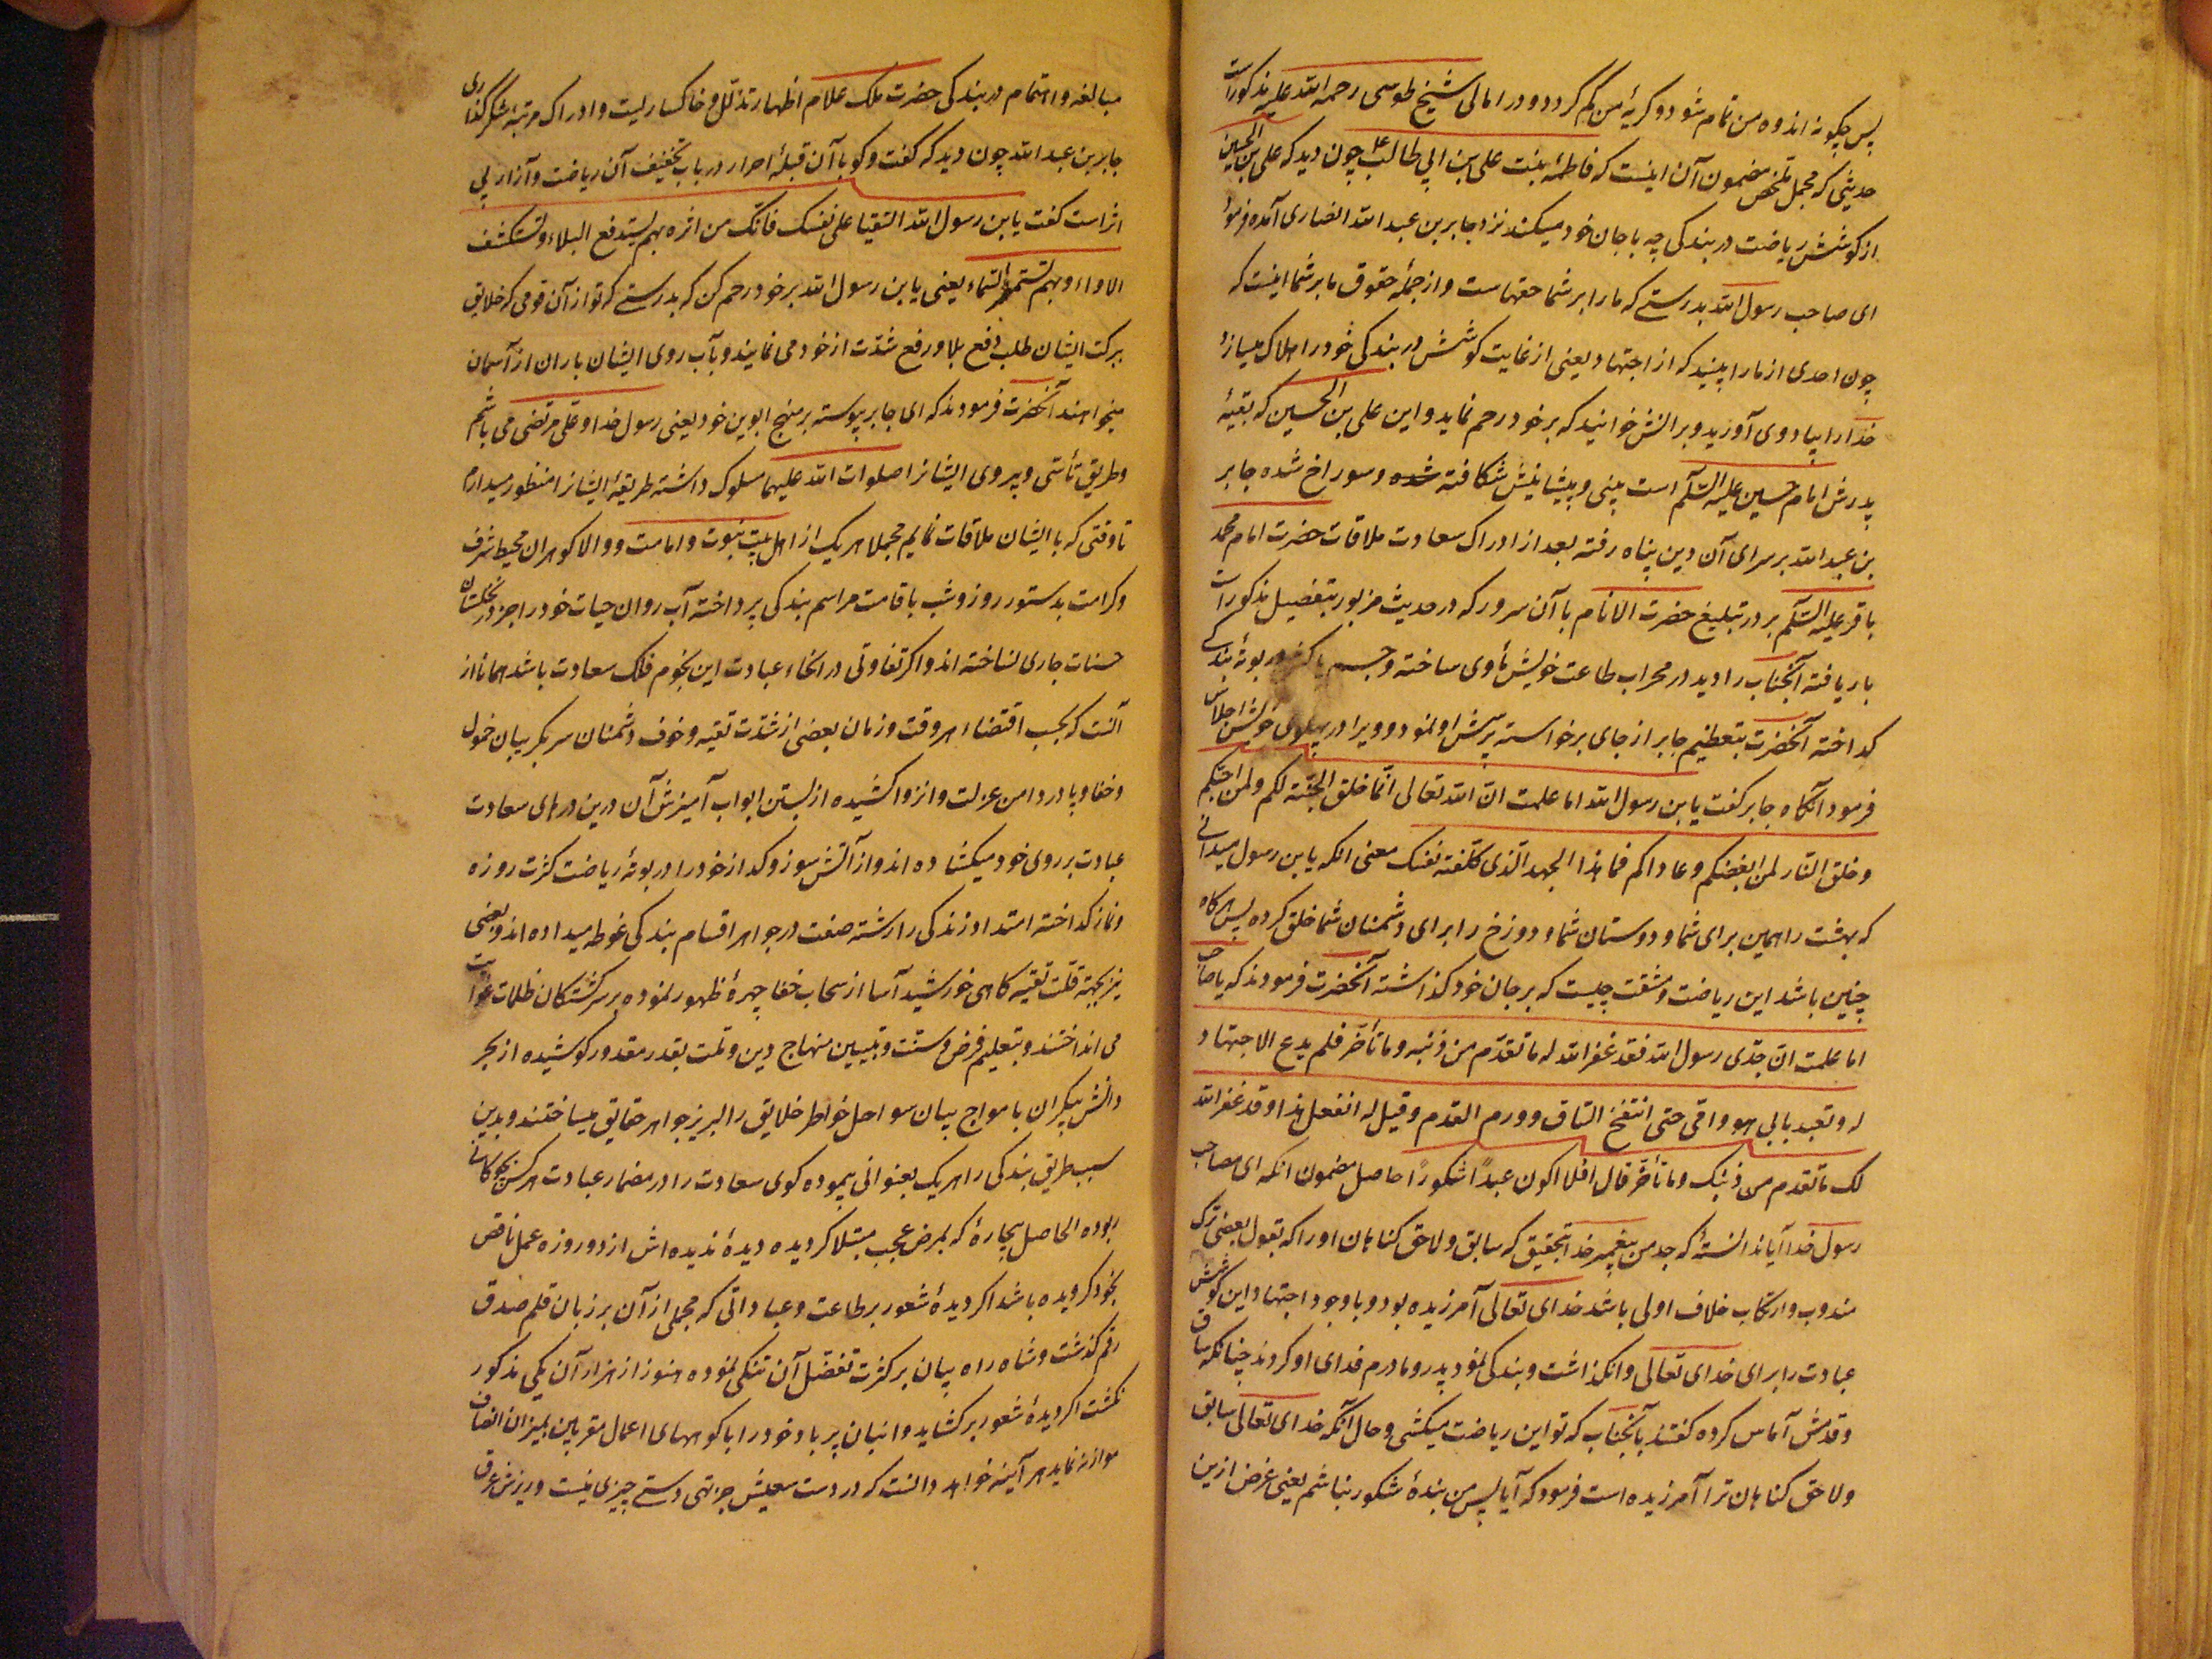 پس چگونه اندوه من تمام شود و گریهٔ من کم گردد و در امالی شیخ طوسی رحمه الله علیه مذکور است
حدیثی که مجمل ملخص مضمون آن اینست که فاطمه بنت علی بن ابی طالب ع چون دید که علی بن الحسین
از کوشش ریاضت در بندگی چه با جان خود میکند نزد جابر بن عبد الله انصاری آمده فرمود
ای صاحب رسول الله بدرستی که ما را بر شما حقهاست و از جملهٔ حقوق ما بر شما اینست که
چون احدی از ما را ببینید که از اجتهاد یعنی از غایت کوشش در بندگی خود را هلاک میسازد
خدا را بیاد وی آورید و بر آنش خوانید که بر خود رحم نماید و این علی بن الحسین که بقیهٔ
پدرش امام حسین علیه السلم است بینی و پیشانیش شکافته شده و سوراخ شده جابر
بن عبد الله بر سرای آن دین پناه رفته بعد از ادراک سعادت ملاقات حضرت امام محمد
باقر علیه السلم بر در تبلیغ حضرت الانام با آن سرور که در حدیث مزبور بتفصیل مذکور است
بار یافته آنجناب را دید در محراب طاعت خویش مأوی ساخته و جسم پاکش در بوتهٔ بندگی
گداخته آنحضرت بتعظیم جابر از جای برخواسته پرسش او نمود و ویرا در پهلوی خویش اجلاس
فرمود آنگاه جابر گفت یا بن رسول الله اما علمت انّ الله تعالی انّما خلق الجنّة لکم ولمن احبّکم
و خلق النّار لمن ابغضکم و عاداکم فما هذا الجهد الّذی کلّفته نفسک معنی آنکه یا بن رسول میدانی
که بهشت را همین برای شما و دوستان شما و دوزخ را برای دشمنان شما خلق کرده پس هرگاه
چنین باشد این ریاضت و مشقت چیست که بر جان خود گذاشته آنحضرت فرمودند که یا صاحب
اما علمت انّ جدّی رسول الله فقد غفر الله له ما تقدّم من ذنبه و ما تأخّر فلم یدع الاجتهاد
له و تعبد بابی هو و اقی حتی انتفخ السّاق و ورم القدم و قیل له اتفعل هذا و قد غفر الله
لک ما تقدم من ذنبک و ما تأخّر قال افلا اکون عبداً شکوراً حاصل مضمون آنکه ای مصاحب
رسول خدا آیا ندانستهٔ که جد من پیغمبر خدا بتحقیق که سابق و لاحق گناهان او را که بقول بعضی ترک
مندوب و ارتکاب خلاف اولی باشد خدای تعالی آمرزیده بود و با وجود اجتهاد این کوشش
عبادت را برای خدای تعالی وانگذاشت و بندگی نمود پدر و مادرم فدای او گردند چنانکه ساق
و قدمش آماس کرده گفتند بآنجناب که تو این ریاضت میکشی و حال آنکه خدای تعالی سابق
و لاحق گناهان ترا آمرزیده است فرمود که آیا پس من بندهٔ شکور نباشم یعنی غرض ازین
مبالغه و اهتمام در بندگی حضرت ملک علّام اظهار تذلّل و خاکساریست و ادراک مرتبهٔ شکرگذاری
جابر بن عبد الله چون دید که گفت و گو با آن قبلهٔ احرار در باب تخفیف آن ریاضت و آزار بی
اثر است گفت یا بن رسول الله البقیا علی نفسک فانّک من اسره بهم یستدفع البلاء و تستکشف
اللاواء و بهم تستمطر السّماء یعنی یا بن رسول الله بر خود رحم کن که بدرستی که تو از آن قومی که خلایق
ببرکت ایشان طلب دفع بلا و رفع شدّت از خود می نمایند و بآب روی ایشان باران از آسمان
میخواهند آنحضرت فرمودند که ای جابر پیوسته بر منهج ابوین خود یعنی رسول خدا و علی مرتضی می باشم
و طریق تأسّی و پیروی ایشانرا صلوات الله علیهما مسلوک داشته طریقهٔ ایشانرا منظور میدارم
تا وقتی که با ایشان ملاقات نمایم مجملا هر یک از اهل بیت نبوت و امامت و والا گوهران محیط شرف
و کرامت بدستور روز و شب باقامت مراسم بندگی پرداخته آب روان حیات خود را جز در نخلستان
حسنات جاری نساخته اند و اگر تفاوتی در انحاء عبادت این نجوم فلک سعادت باشد همانا از
آنست که بحسب اقتضاء هر وقت و زمان بعضی از شدّت تقیه و خوف دشمنان سر بگریبان خمول
و خفا و پا در دامن عزلت و انزوا کشیده از بستن ابواب آمیزش آن و این درهای سعادت
عبادت بر روی خود میگشاده اند و از آتش سوز و گداز خود را در بوتهٔ ریاضت کثرت روزه
و نماز گداخته امتداد زندگی را رشته صفت در جواهر اقسام بندگی غوطه میداده اند و بعضی
نیز بجهة قلّت تقیه گاهی خورشید آسا از سحاب خفا چهرهٔ ظهور نموده بر سرگشتگان ظلمات غوایت
می انداختند و بتعلیم فرض و سنّت و تبیین منهاج دین و ملت بقدر مقدور کوشیده از بحر
دانش بیکران بامواج بیان سواحل خواطر خلایق را لبریز جواهر حقایق میساختند و بدین
سبب طریق بندگی را هر یک بعنوانی پیموده گوی سعادت را در مضمار عبادت هر کس بچوگانی
ربوده الحاصل بیچارهٔ که بمرض عجب مبتلا گردیده دیدهٔ ندیده اش از دو روزه عمل ناقص
بخود گرویده باشد اگر دیدهٔ شعور بر طاعت و عباداتی که مجملی از آن بر زبان قلم صدق
رقم گذشت و شاه راه بیان بر کثرت تفضّل آن تنگی نموده هنوز از هزار آن یکی مذکور
نگشت اگر دیدهٔ شعور برگشاید و انبان پر باد خود را با کوههای اعمال مقربین بمیزان انصاف
موازنه نماید هر آینه خواهد دانست که در دست سعیش جز تهی دستی چیزی نیست و ریزش عرق